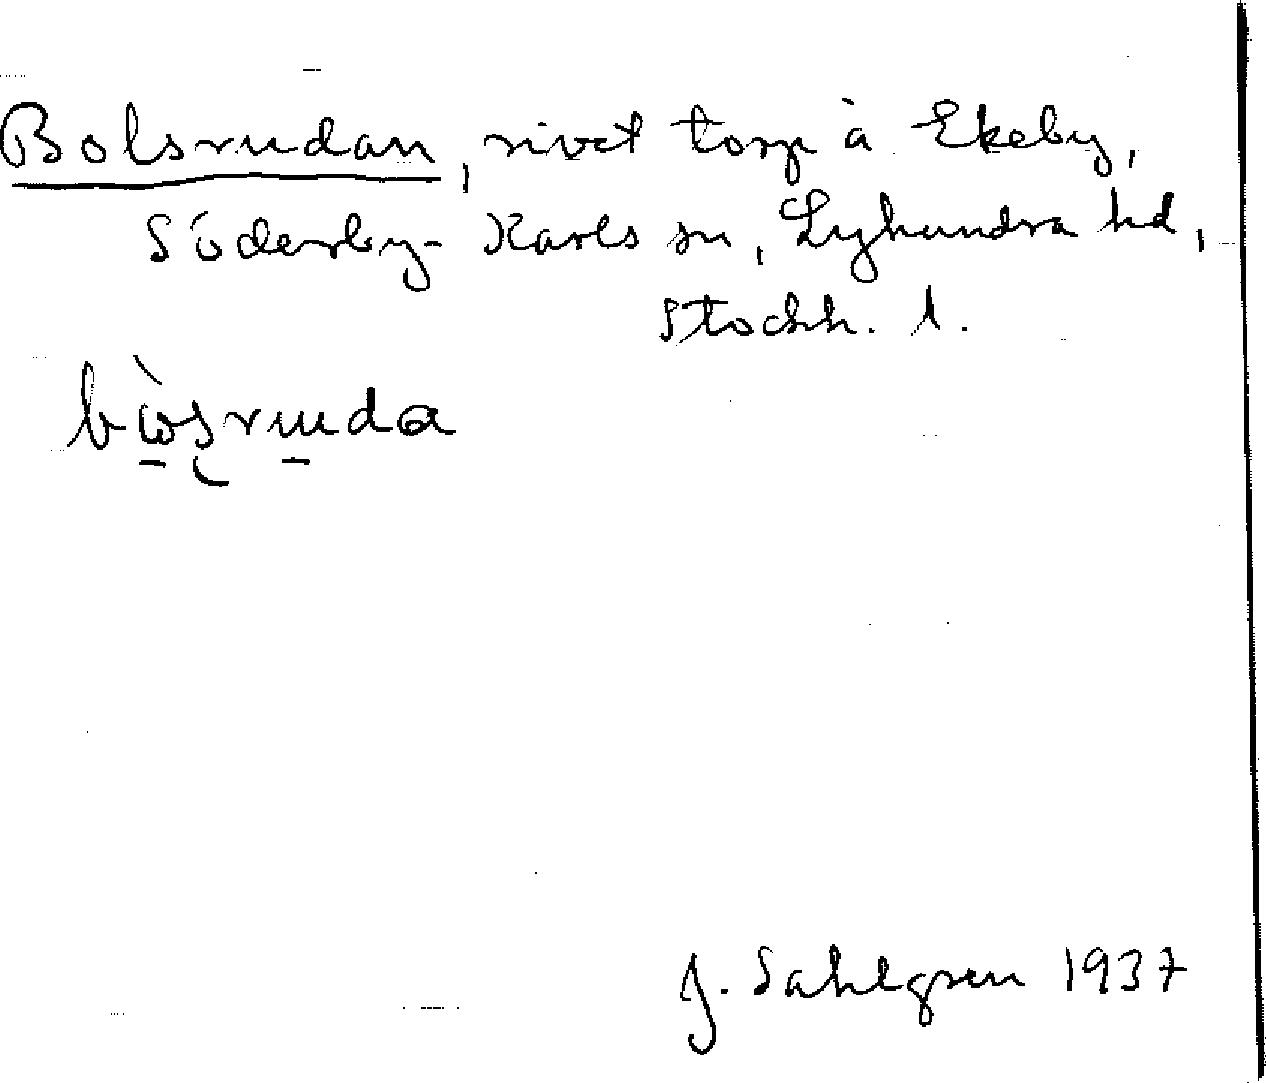 Bolsrudan, rivet torp å Ekeby,
Söderby-Karls sn, Lyhundra hd,
Stockh. l.
J. Sahlgren 1937